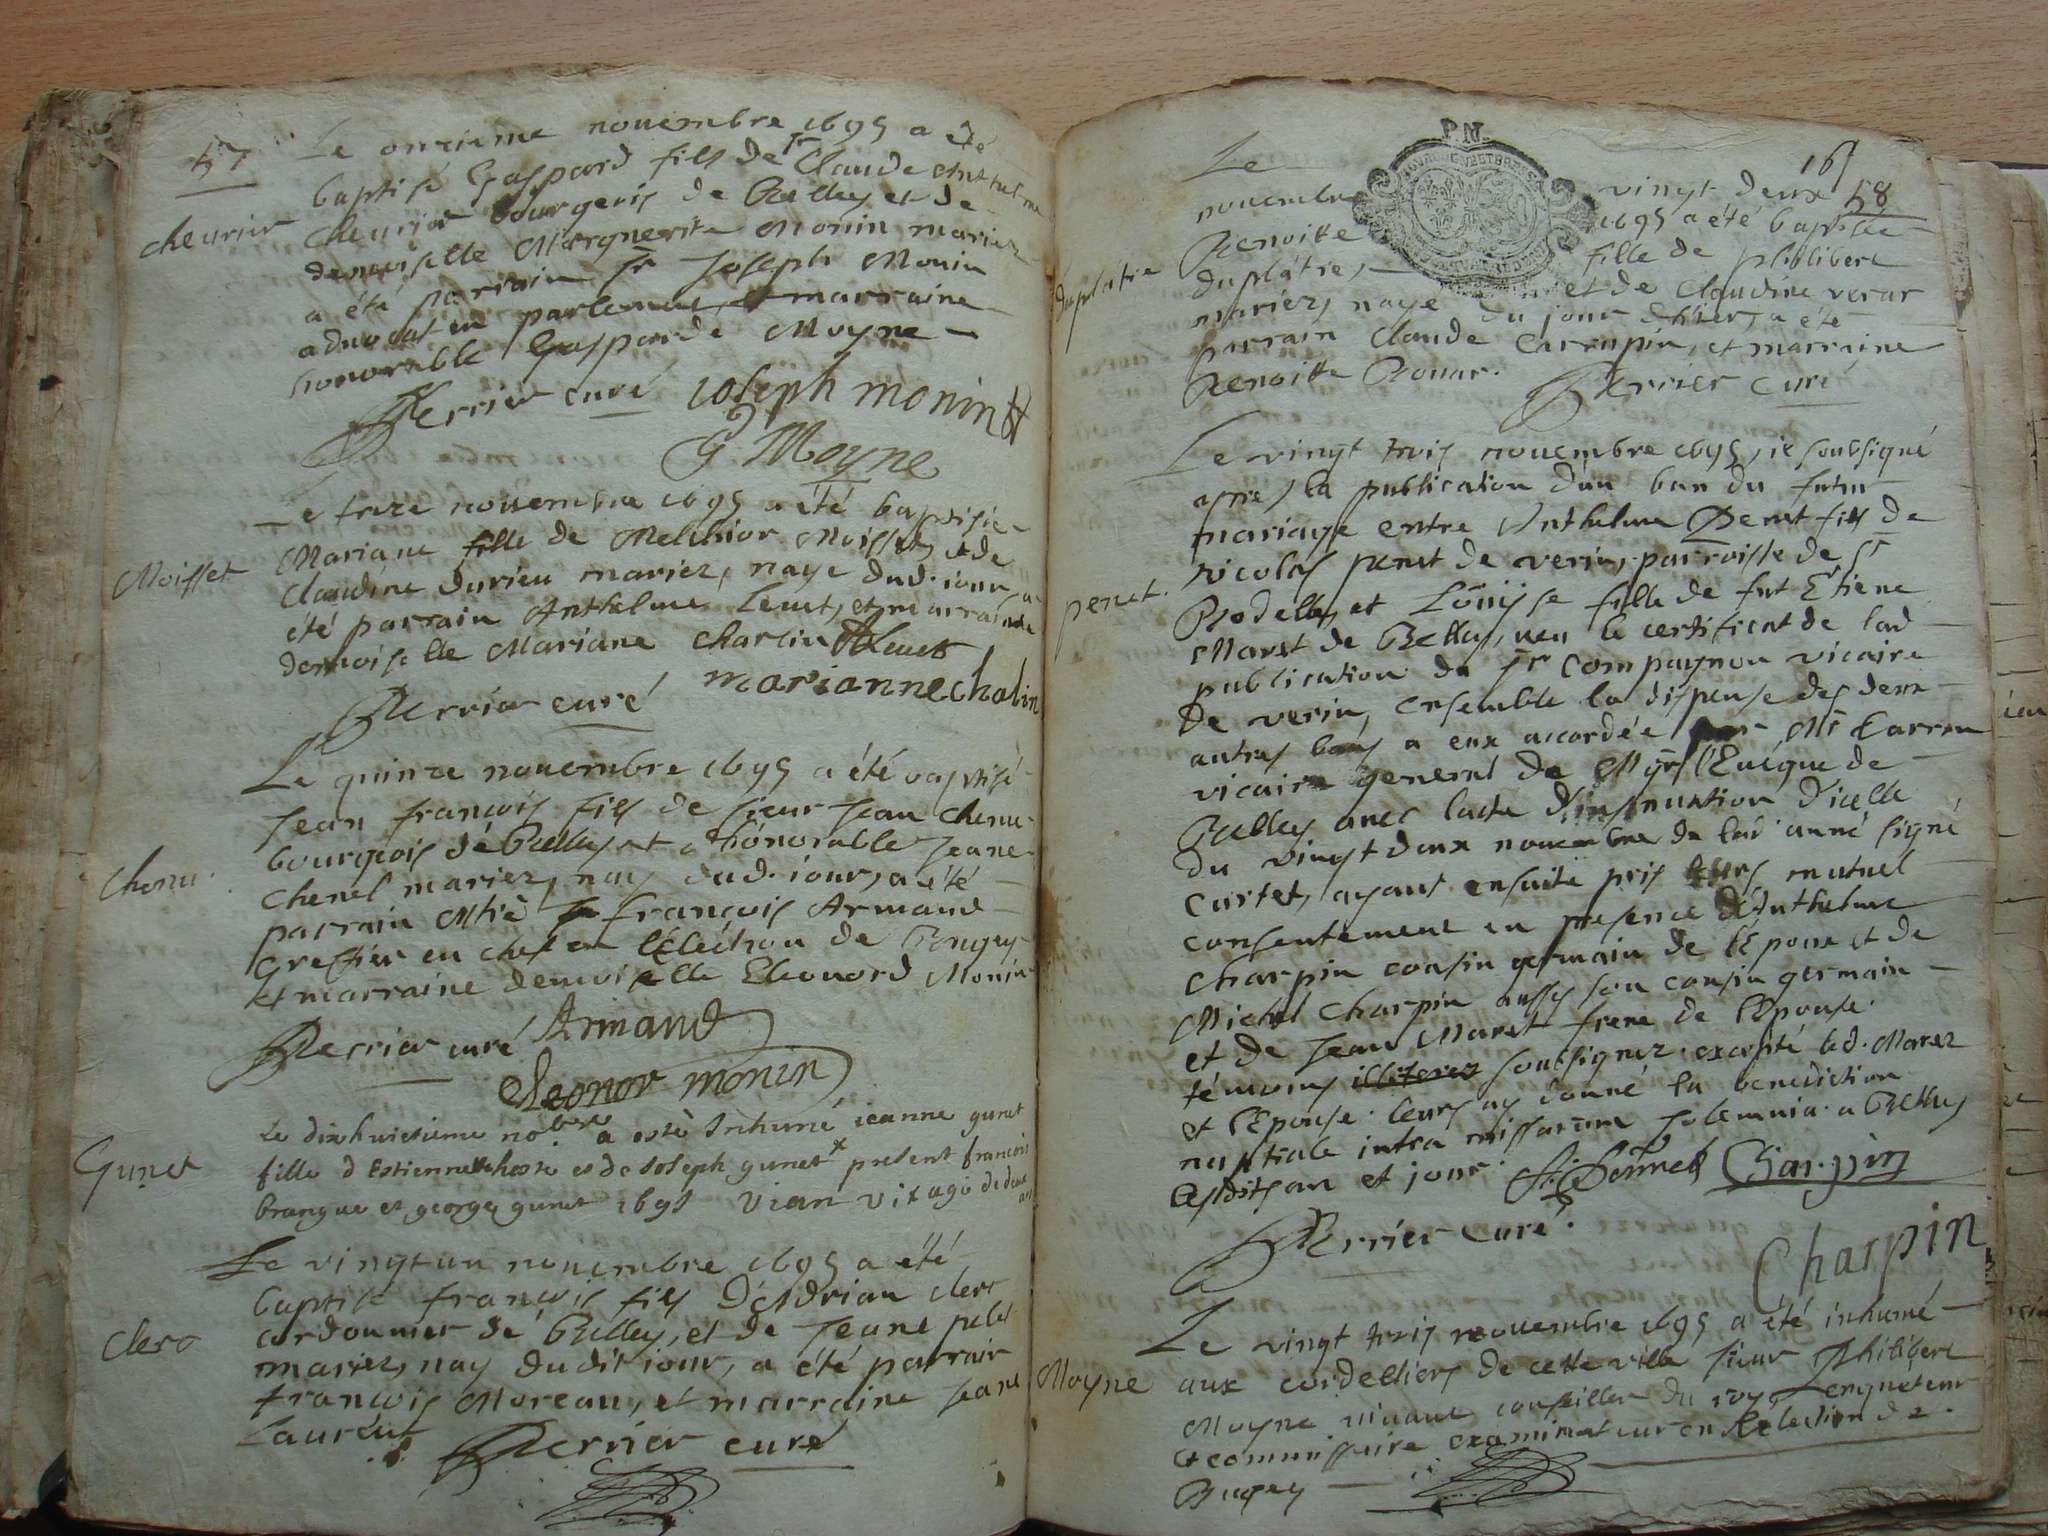 57
Le onzieme novembre 1695 a été
baptisé Gaspard fils de Sr Claude Anthelme
cheurier
Cheurier bourgeois de Belley et de
demoiselle Marguerite Monin mariez
a été parrain Sr Joseph Monin
aduocat en parlement, et marraine
honorable Gasparde Moyne
Perrier curé Joseph Monin
G Moyne
Le treze nouembre 1695 a été baptisée
Mariane fille de Melchior Moisset, et de
Moisset
Claudine Durieu mariez, naye dud. iour, a
été parrain Anthelme Leuet, et marraine
demoiselle Mariane Charlin ALeuet
Perrier curé marianne chalin
Le quinze nouembre 1695 a été baptisé
Jean françois fils de sieur Jean Chenu
bourgeois de Belley et honorable Jeane
Chenu.
Chenel mariez, nay dud. iour, a été
parrain Mtre françois Armand
Greffier en chef en l'élection de Bougey
et marraine demoiselle Eleonord Monin
Perrier curé Armand
Eleonor monin
Le dixhuictieme nobre a esté Inhumé ieanne gunet
Gunet
fille d'Estiennette hoste et de Joseph gunet * present francois
brangue et george gunet 1695 vian vix agé de deux ans
Le vingt un nouembre 1695 a été
baptisé françois fils d'Adrian clerc
Clerc
cordonnier de Belley, et de Jeane
mariez, nay dudit iour, a été parrain
françois Moreau, et marraine Jeane
Laurent
Perrier curé
P.N.
165
Le vingt deux 58
nouembre 1695 a été baptisée
Benoitte fille de philibert
duplatre
duplâtre, et de Claudine
mariez, naye du jour d'hier, a été
parrain Claude Carrupin, et marraine
Benoitte Bouar.
Perrier curé
Le vingt trois nouembre 1695, ie soubsigné
apres la publication d'un ban du futur
mariage entre Anthelme Penet fils de
nicolas penet de verin, parroisse de St
penet.
Bodelle, et Louyse fille de fut Etiene
Maret de Belley, ueu le certificat de lad
publication du Sr Compagnon vicaire
de verin, ensemble la dispense des deux
autres bans a eux accordée par Mr Carron
vicaire general de Mgr l'Euéque de
Belley auec lacte d'insinuation d'icelle
du vingt deux nouembre de lad. année signé
Curtet, ayant ensuite pris leurs mutuel
consentement en presence d'Anthelme
Charpin cousin germain de l'Epoux et de
Michel Charpin aussy son cousin germain
et de Jean Maret frere de l'Epouse
témoins illiterez soubsignez excepté led. Maret
et l'Epouse. leurs ay donné la benediction
nuptiale intra missarum solemnia. a Belley
lesdits an et jour. Charpin
Perrier curé.
Charpin
Le vingt trois nouembre 1695 a été inhumé
Moyne
aux cordelliers de cette ville sieur Philibert
Moyne viuant conseiller du roy, enqueteur
et commissaire examinateur en l'election de
Bugey